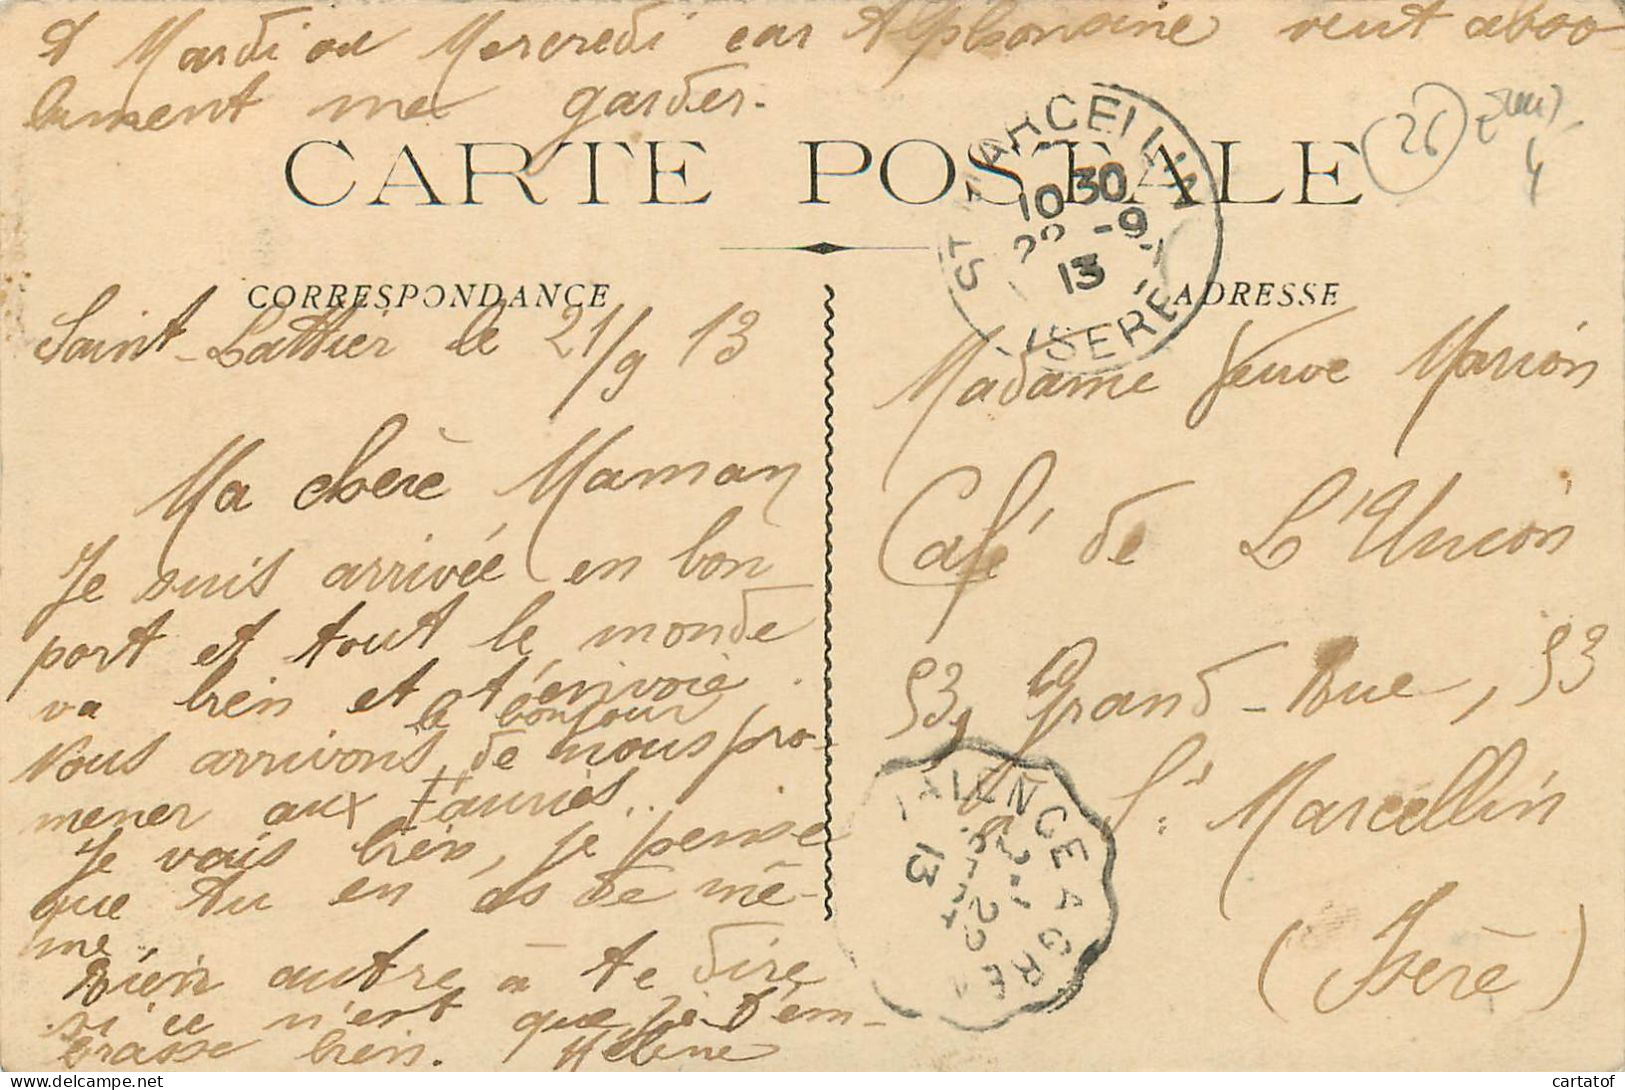 A Mardi ou Mercredi car Alphonsine veut abso-
lument me garder.
CARTE POSTALE
26
ST MARCELLIN
10 30
22 -9
13
ISERE
CORRESPONDANCE
ADRESSE
Saint-Lattier le 21/9 13
Ma chère Maman
Je suis arrivée en bon
port et tout le monde
va bien et t'envoie
le bonjour
Nous arrivons de nous pro-
mener aux Fauries..
Je vais bien, je pense
que tu en es de mê-
me.
Rien autre à te dire
si ce n'est que je t'em-
brasse bien. Hélène
Madame Veuve Marion
Café de L'Union
53, Grand-Rue, 53
à St Marcellin
(Isère)
VALENCE A GRE
22
13
cartatof